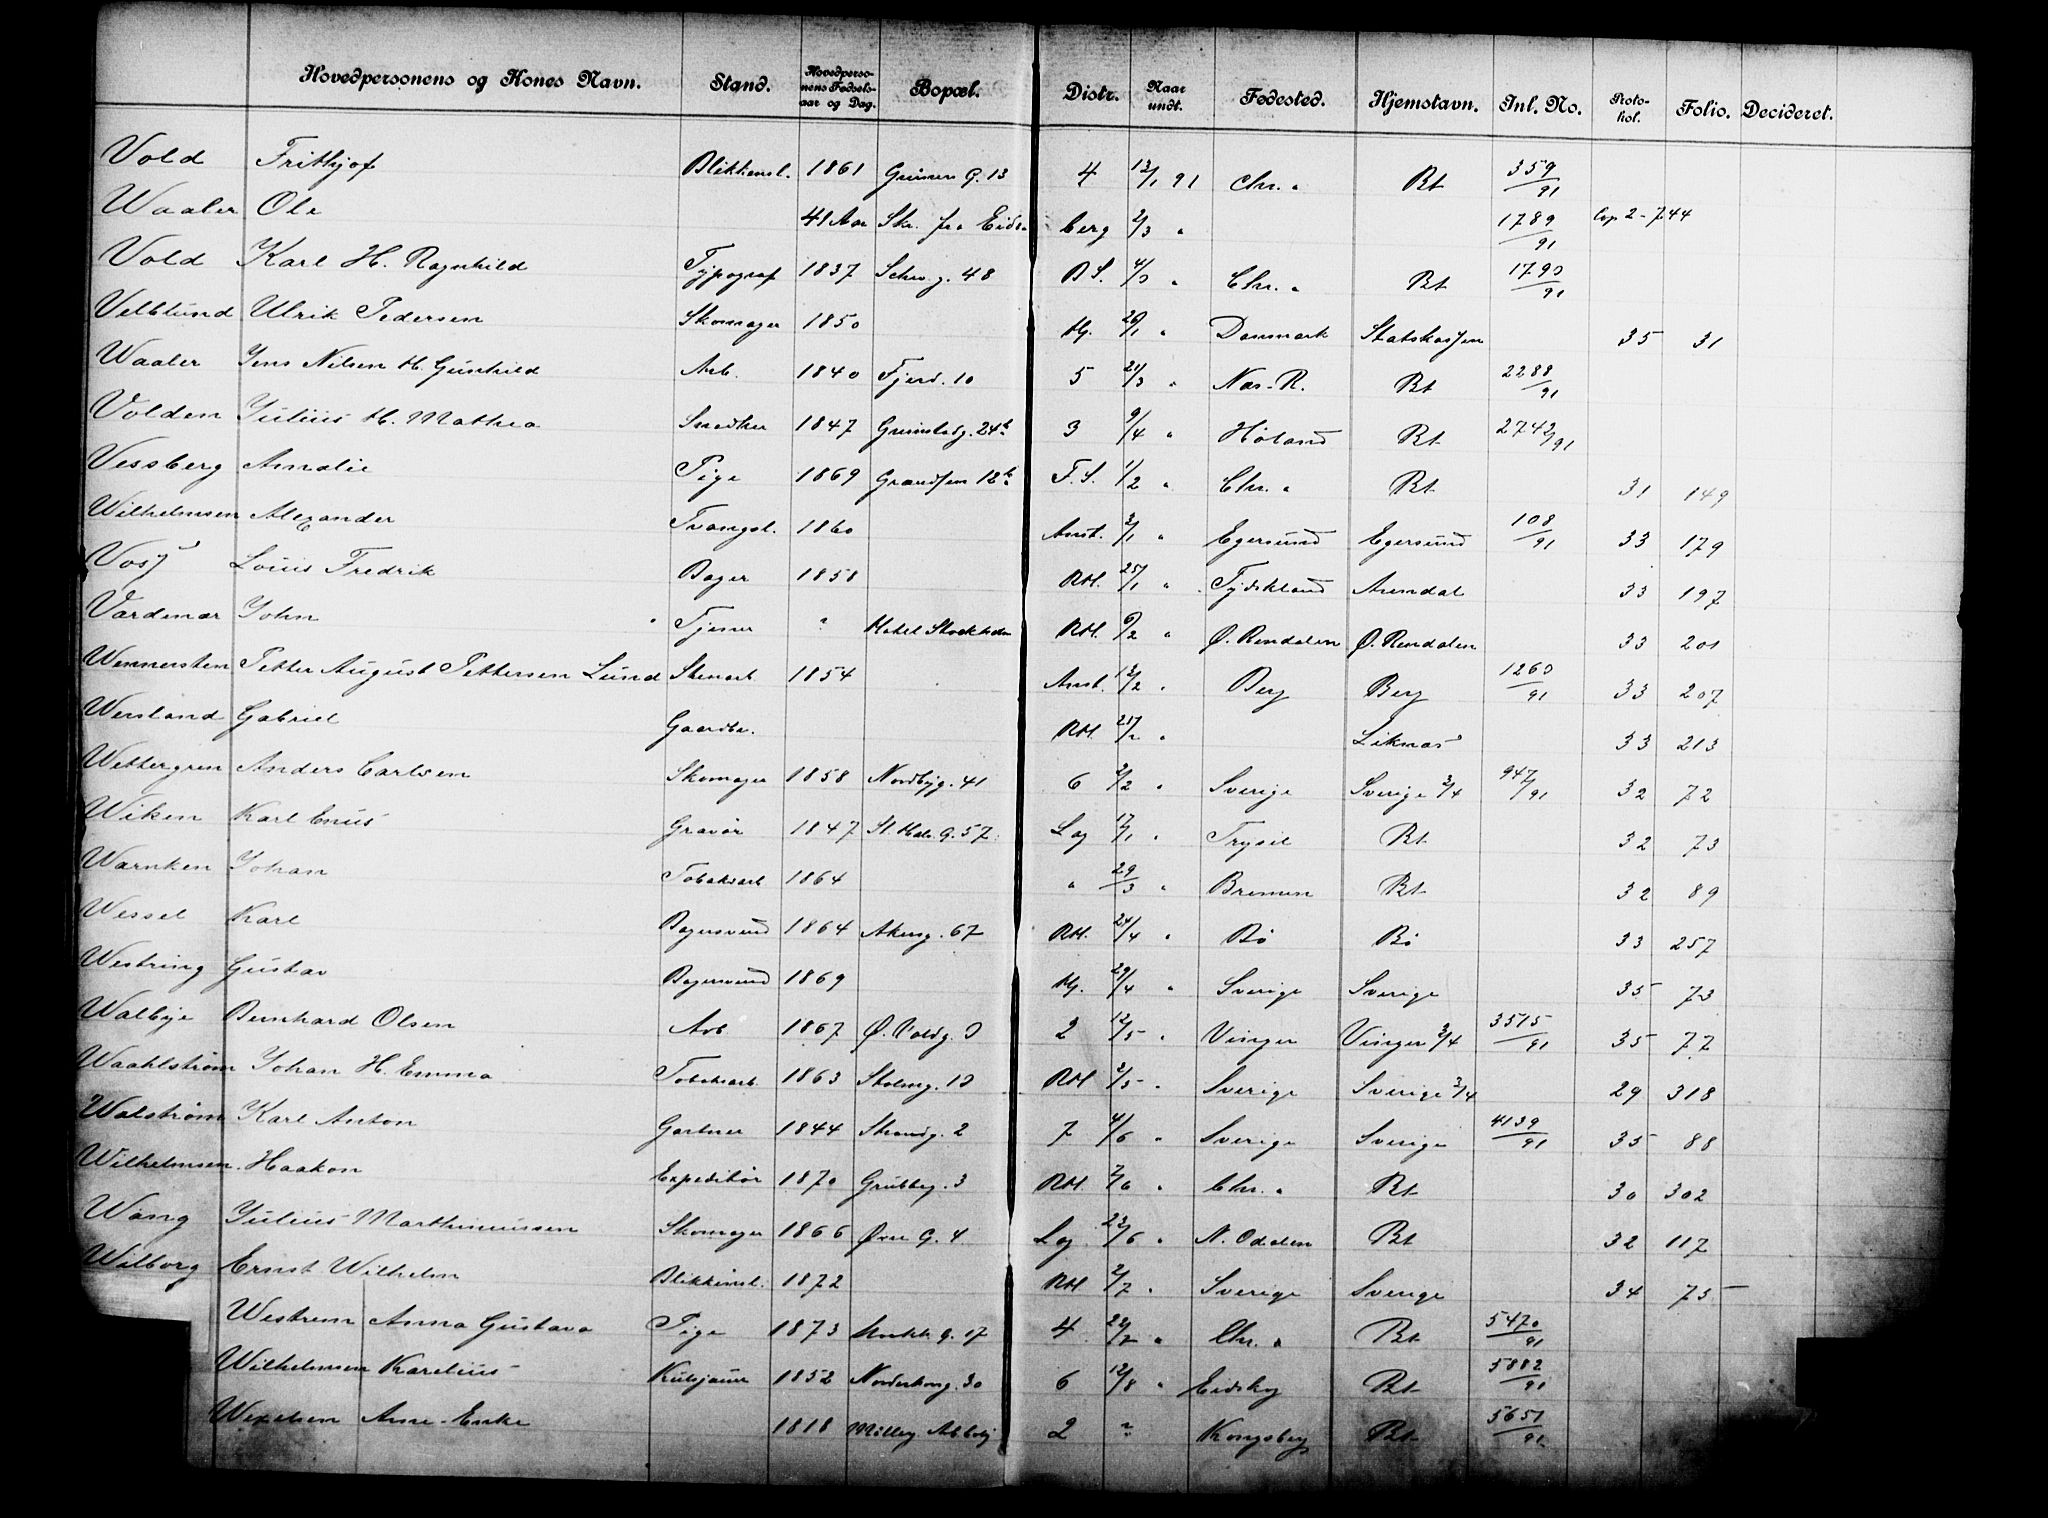 Hovedpersonens og Kones Navn. Stand. Hovedperso-nens Fødsels-aar og Dag. Bopæl. Distr. Naar undt. Fødested. Hjemstavn. Inl. No. Proto-kol. Folio. Decideret.
Vold Frithjof Blikkensl. 1861 G. 13 4 12/1 91 Chr.a Bt 359/91
Waaler Ole 41 Aar Skr. fra Eids berg 2/3 " 1789/91 Cop 2-744
Vold Karl H. Ragnhild Typograf 1837 Schwg. 48 BS. 4/3 " Chr.a Bt 1790/91
Velblund Ulrik Pedersen Skomager 1850 Hj. 20/1 " Danmark Statskassen 35 31
Waaler Jens Nilsen H. Gunhild Arb. 1840 Fjerd. 10 5 21/3 " Nes-R. Bt 2288/91
Volden Julius H. Mathea Snedker 1847 24b 3 9/4 " Høland Bt 2742/91
Vessberg Amalie Pige 1869 Grændsen 12b F.S. 1/2 " Chr.a Bt 31 149
Wilhelmsen Alexander Tvangsl. 1860 Anst. 2/1 " Egersund Egersund 108/91 33 179
Voss Louis Fredrik Bager 1858 RH. 25/1 " Tydskland Arendal 33 197
Vardenær John " Tjener " Hotel Stockholm RH. 9/2 " Ø. Rendalen Ø. Rendalen 33 201
Wennersten Petter August Pettersen Lund Stenarb 1854 Anst. 12/2 " Berg Berg 1260/91 33 207
Wersland Gabriel Gaardbr. RH. 21/2 " Liknæs 33 213
Wettergren Anders Carlsen Skomager 1858 Nordbyg. 41 6 2/2 " Sverige Sverige 3/4 947/91 32 72
Wiken Karl Enus Gravør 1847 St. Halv. G. 57 Lag 17/1 " Trysil Bt 32 73
Warnken Johan Tobaksarb 1864 " 29/3 " Bremen Bt 32 89
Wessel Karl Bagersvend 1864 Akersg. 67 RH. 24/4 " Bø Bø 33 257
Westring Gustav Bagersvend 1869 Hj. 29/4 " Sverige Sverige 35 73
Walbye Bernhard Olsen Arb 1867 Ø. Voldg. 9 2 12/5 " Vinger Vinger 3/4 3515/91 35 77
Waahlstrøm Johan H. Emma Tobaksarb. 1863 Stolmg. 10 RH 2/5 " Sverige Sverige 3/4 29 318
Walstrøm Karl Anton Gartner 1844 Strandg. 2 7 4/6 " Sverige Sverige 4139/91 35 88
Wilhelmsen Haakon Expeditør 1870 Grubbeg. 3 RH. 2/6 " Chr.a Bt 30 302
Wang Julius Marthinussen Skomager 1866 Øvre G. 4 Lag 23/6 " N. Odalen Bt 32 117
Wilborg Ernst Wilhelm Blikkensl. 1872 RH 2/7 " Sverige Sverige 34 75
Westrem Anna Gustava Pige 1873 G. 17 4 22/7 " Chr.a Bt 5470/91
Wilhelmsen Karelius Kulsjauer 1852 Nordahlg. 30 6 12/8 " Eidskog Bt 5882/91
Wexelsen Anne Enke 1818 2 " Kongsberg Bt 5651/91